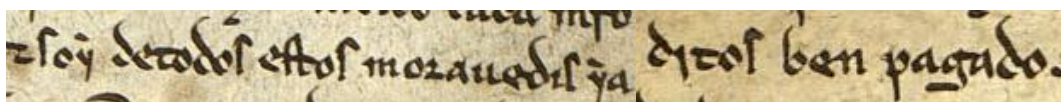 τ soỹ de todos estos morauedis ỹa ditos ben pagado.